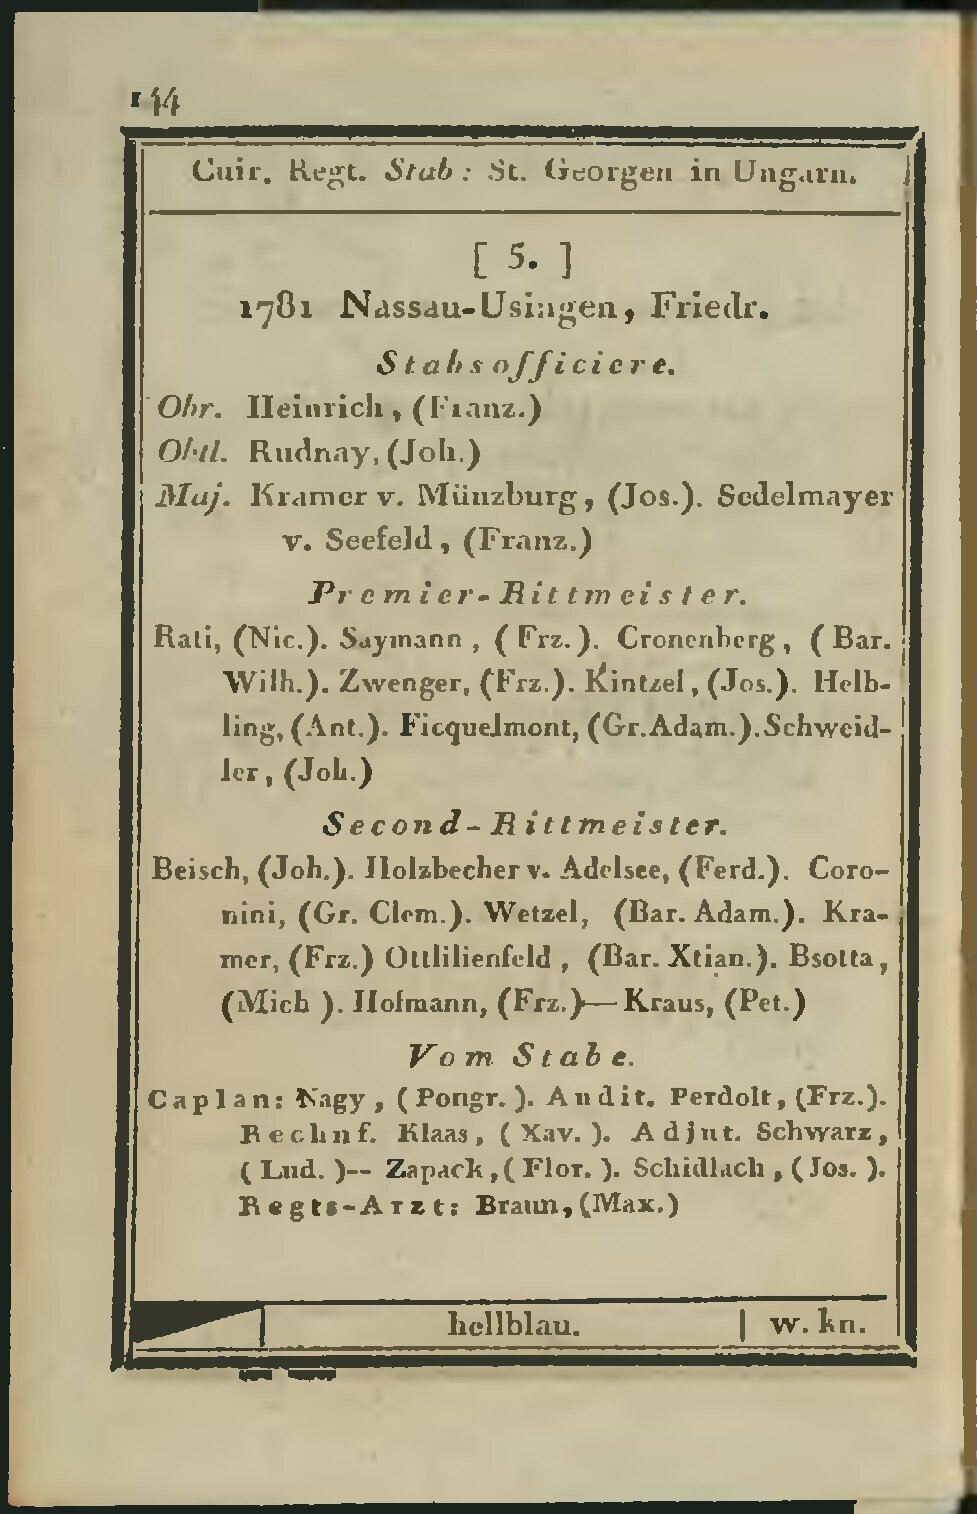 144
Cuir. Regt. Stab: St. Georgen in Ungarn.
[ 5. ]
1781 Nassau-Usingen, Friedr.
Stabsofficiere.
Obr. Heinrich, (Franz.)
Obtl. Rudnay, (Joh.)
Maj. Kramer v. Münzburg, (Jos.). Sedelmayer
v. Seefeld, (Franz.)
Premier-Rittmeister.
Rati, (Nic.). Saymann, (Frz.). Cronenberg, (Bar.
Wilh.). Zwenger, (Frz.). Kintzel, (Jos.). Helb-
ling, (Ant.). Ficquelmont, (Gr. Adam.). Schweid-
ler, (Joh.)
Second-Rittmeister.
Beisch, (Joh.). Holzbecher v. Adelsee, (Ferd.). Coro-
nini, (Gr. Clem.). Wetzel, (Bar. Adam.). Kra-
mer, (Frz.) Ottlilienfeld, (Bar. Xtian.). Bsotta,
(Mich ). Hofmann, (Frz.)— Kraus, (Pet.)
Vom Stabe.
Caplan: Nagy, (Pongr.). Audit. Perdolt, (Frz.).
Rechnf. Klaas, (Xav.). Adjut. Schwarz,
(Lud.)-- Zapack, (Flor.). Schidlach, (Jos.).
Regts-Arzt: Braun, (Max.)
hellblau. | w. kn.